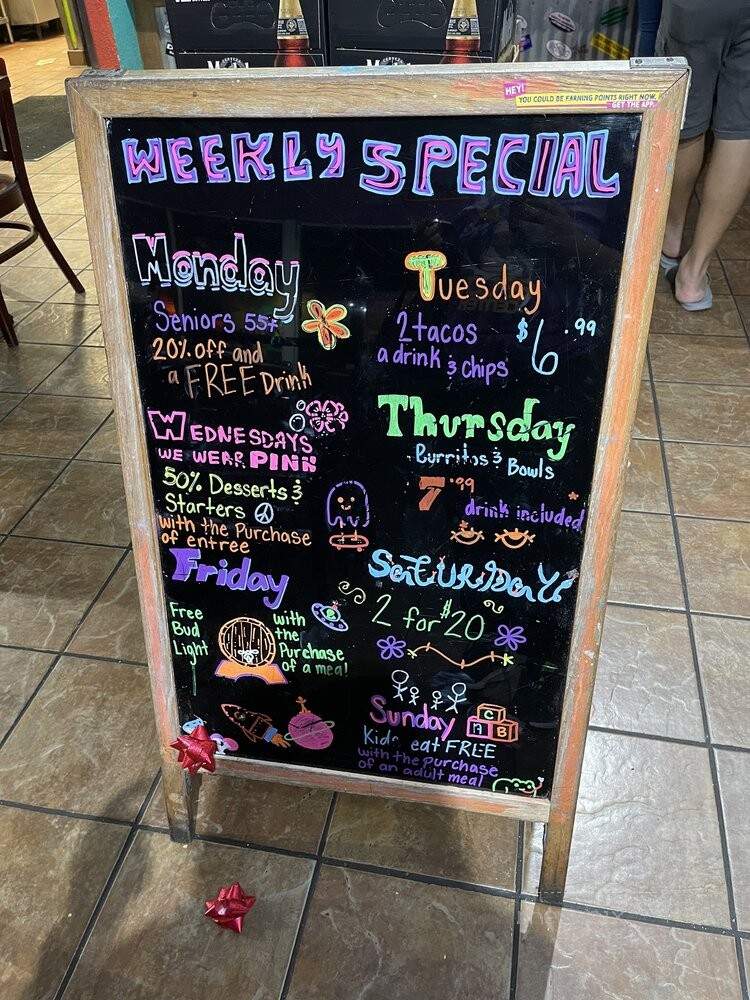 HEY!
YOU COULD BE EARNING POINTS RIGHT NOW.
GET THE APP.
WEEKLY SPECIAL
Monday
Seniors 55+
20% off and
a FREE Drink
Tuesday
2 tacos
a drink & chips
$6.99
WEDNESDAYS
WE WEAR PINK
50% Desserts &
Starters
with the Purchase
of entree
Thursday
Burritos & Bowls
7.99
drink included
Friday
Free
Bud
Light
with
the
Purchase
of a meal
Saturday
2 for $20
Sunday
Kids eat FREE
with the purchase
of an adult meal
C
A B